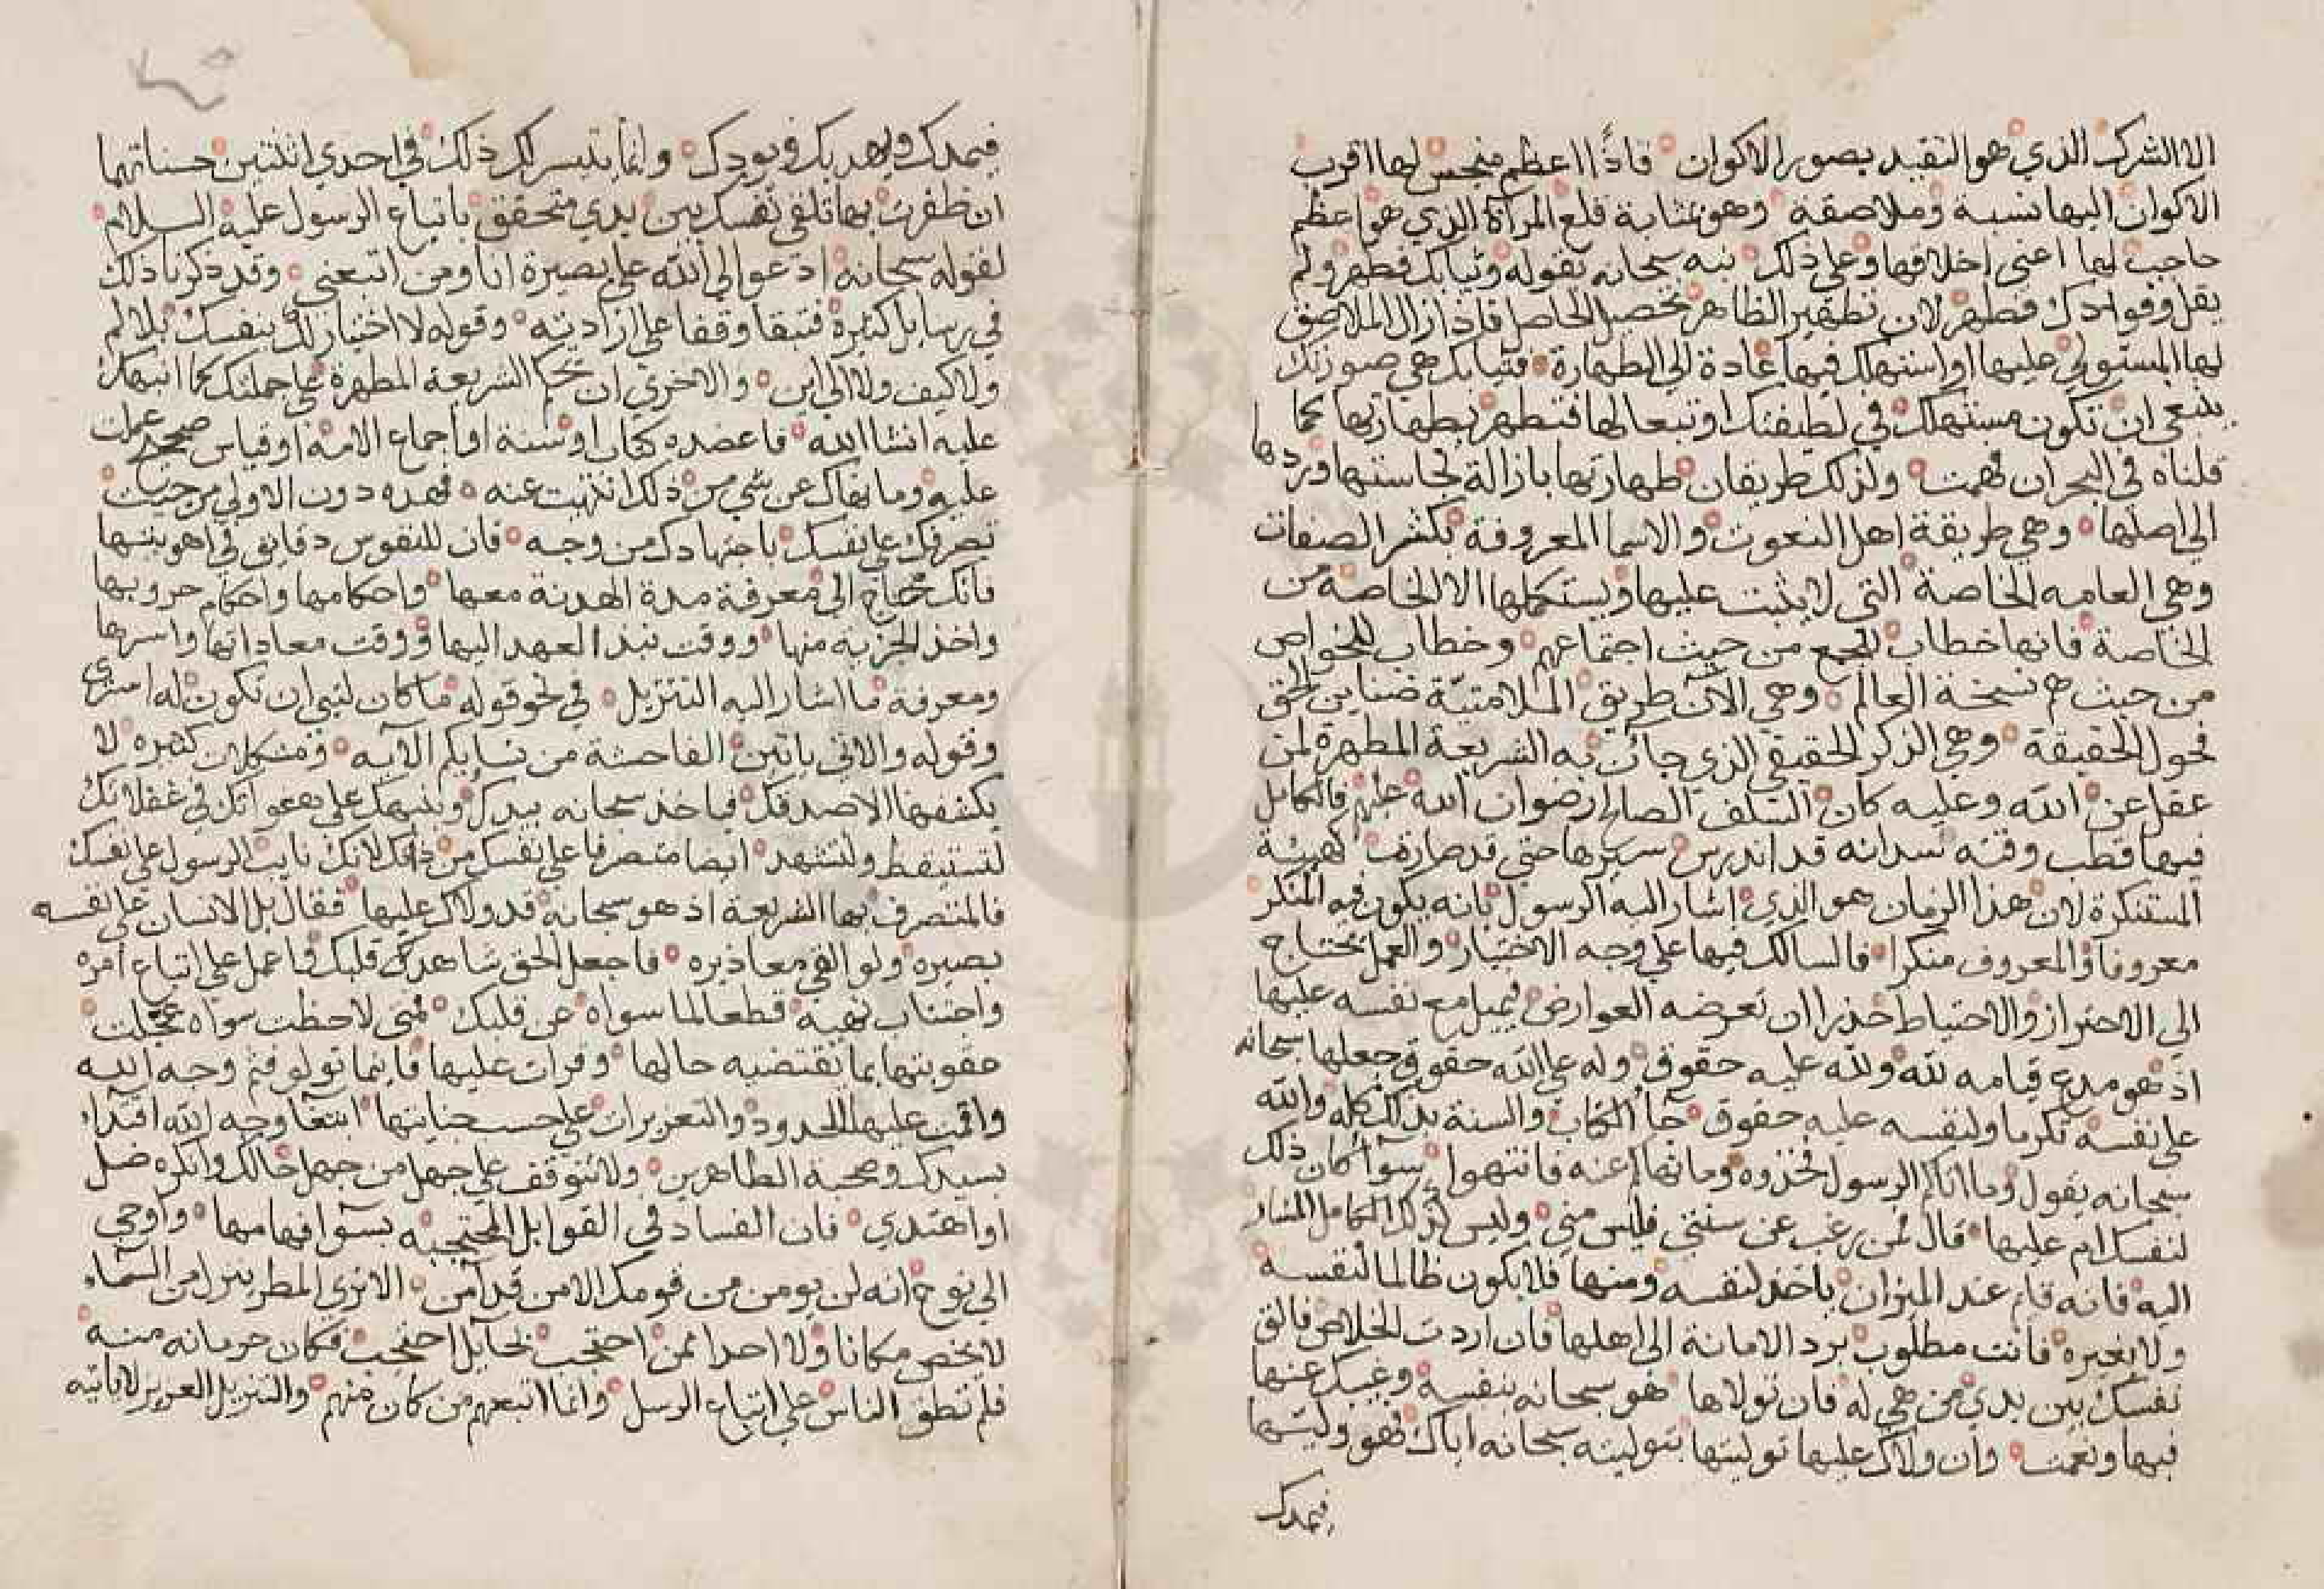 الا الشرك الذي هو التقيد بصور الاكوان فاذًا اعظم منجس لها اقرب
الاكوان اليها نسبة وملاصقة وهو بمثابة قلع المرآة الذي هو اعظم
حاجب لها اعني اخلاقها وعلى ذلك نبه سبحانه بقوله وثيابك فطهر ولم
يقل وفوادك فطهر لان تطهير الظاهر تحصيل الحاصل فاذا زال الملاصق
لها المستولي عليها او استهلك فيها عادة الى الطهارة فثيابك هي صورتك
ينبغي ان تكون مستهلك في لطيفتك او تبعا لها فتطهر بطهارتها كما
قلناه في البحر ان فهمت ولذلك طريقان طهارتها بازالة نجاستها وردها
الى اصلها وهي طريقة اهل النعوت والاسما المعروفة بكشر الصفات
وهي العامه الخاصة التي لا يثبت عليها ويستكملها الا الخاصة من
الخاصة فانها خطاب للجمع من حيث اجتماعهم وخطاب للخواص
من حيث هم نسخة العالم وهي الآن طريق الملامتيّة ضناين الحق
فحول الحقيقة وهي الذكر الحقيقي الذي جات به الشريعة المطهرة لمن
عقل عن الله وعليه كان السلف الصالح رضوان الله عليهم فالكامل
فيها قطب وقته نسدانه قد اندرس سيرها حتى قد صارت كهيئة
المستنكرة لان هذا الزمان هو الذي اشار اليه الرسول بانه يكون فيه المنكر
معروفا والمعروف منكرا فالسالك فيها على وجه الاختيار والعمل يحتاج
الى الاحتراز والاحتياط حذرا ان تعرضه العوارض فيميل مع نفسه عليها
اذ هو مدع قيامه لله ولله عليه حقوق وله على الله حقوق جعلها سبحانه
على نفسه تكرما ولنفسه عليه حقوق جآ الكتاب والسنة بذلك كله والله
سبحانه يقول وما اتاكم الرسول فخذوه وما نهاكم عنه فانتهوا سوآ كان ذلك
لنفسك ام عليها قال فمن رغب عن سنتي فليس مني وليس كذلك الكامل المشار
اليه فانه قايم عند الميزان ياخذ لنفسه ومنها فلا يكون ظالما لنفسه
ولا لغيره فانت مطلوب برد الامانة الى اهلها فان اردت الخلاص فالق
نفسك بين يدي من هي له فان تولاها هو سبحانه بنفسه وغيبك عنها
فبها ونعمت وان ولاك عليها توليتها بتوليته سبحانه اياك فهو وليها
فيمدك
فيمدك ويهديك ويودك وانما يتيسر لك ذلك في احدي اثنتين حسناتهما
ان ظفرت بها تلقي نفسك بين يدي متحقق باتباع الرسول عليه السلام
لقوله سبحانه ادعو الى الله على بصيرة انا ومن اتبعني وقد ذكرنا ذلك
في رسايل كثيرة فتبقا وقفا على ارادته وقوله لا اختيار لك بنفسك بلا لم
ولا كيف ولا الى اين والاخري ان تحكم الشريعة المطهرة على جملتك كما انبهك
عليه انشا الله فما عضده كتاب او سنة او اجماع الامة او قياس صحيح عملت
عليه وما نهاك عن شي من ذلك انتهيت عنه فهذه دون الاولي من حيث
تصرفك على نفسك باجتهادك من وجه فان للنفوس دقايق في اهويتها
فانك محتاج الى معرفة مدة الهدنة معها واحكامها واحكام حروبها
واخذ الجزيه منها ووقت نبذ العهد اليها ووقت معاداتها واسرها
ومعرفة ما اشار اليه التنزيل في نحو قوله ما كان لنبي ان تكون له اسرى
وقوله والاتي ياتين الفاحشة من نسايكم الآيه ومشكلات كثيره لا
يكشفها الا صدقك فياخذ سبحانه بيدك وينبهك على هفواتك في غفلاتك
لتستيقظ ولتشهد ايضا متصرفا على نفسك من ذلك لانك نايب الرسول على نفسك
فالمتصرف بها الشريعة اذ هو سبحانه قد ولاك عليها فقال بل الانسان على نفسه
بصيره ولو القى معاذيره فاجعل الحق شاهدك قلبك فاعمل على اتباع امره
واجتناب نهيه قطعا لما سواه عن قلبك فمتى لاحظت سواه عجلت
عقوبتها بما تقتضيه حالها وقرات عليها فاينما تولو فثم وجه الله
واقمت عليها الحدود والتعزيرات على حسب جنايتها ابتغا وجه الله اقتداء
بسيدك وصحبة الطاهرين ولا تتوقف على جهل من جهل حالك وانكره ضل
او اهتدي فان الفساد في القوابل المحتجبه بسوا فهامها واوحي
الى نوح انه لن يومن من قومك الا من قد آمن الا تري المطر ينزل من السماء
لا يخص مكانا ولا احدا فمن احتجب بحآيل احتجب فكان حرمانه منه
فلم تطق الناس على اتباع الرسل وانما اتبعهم من كان منهم والتنزيل العزيز لا ياتيه